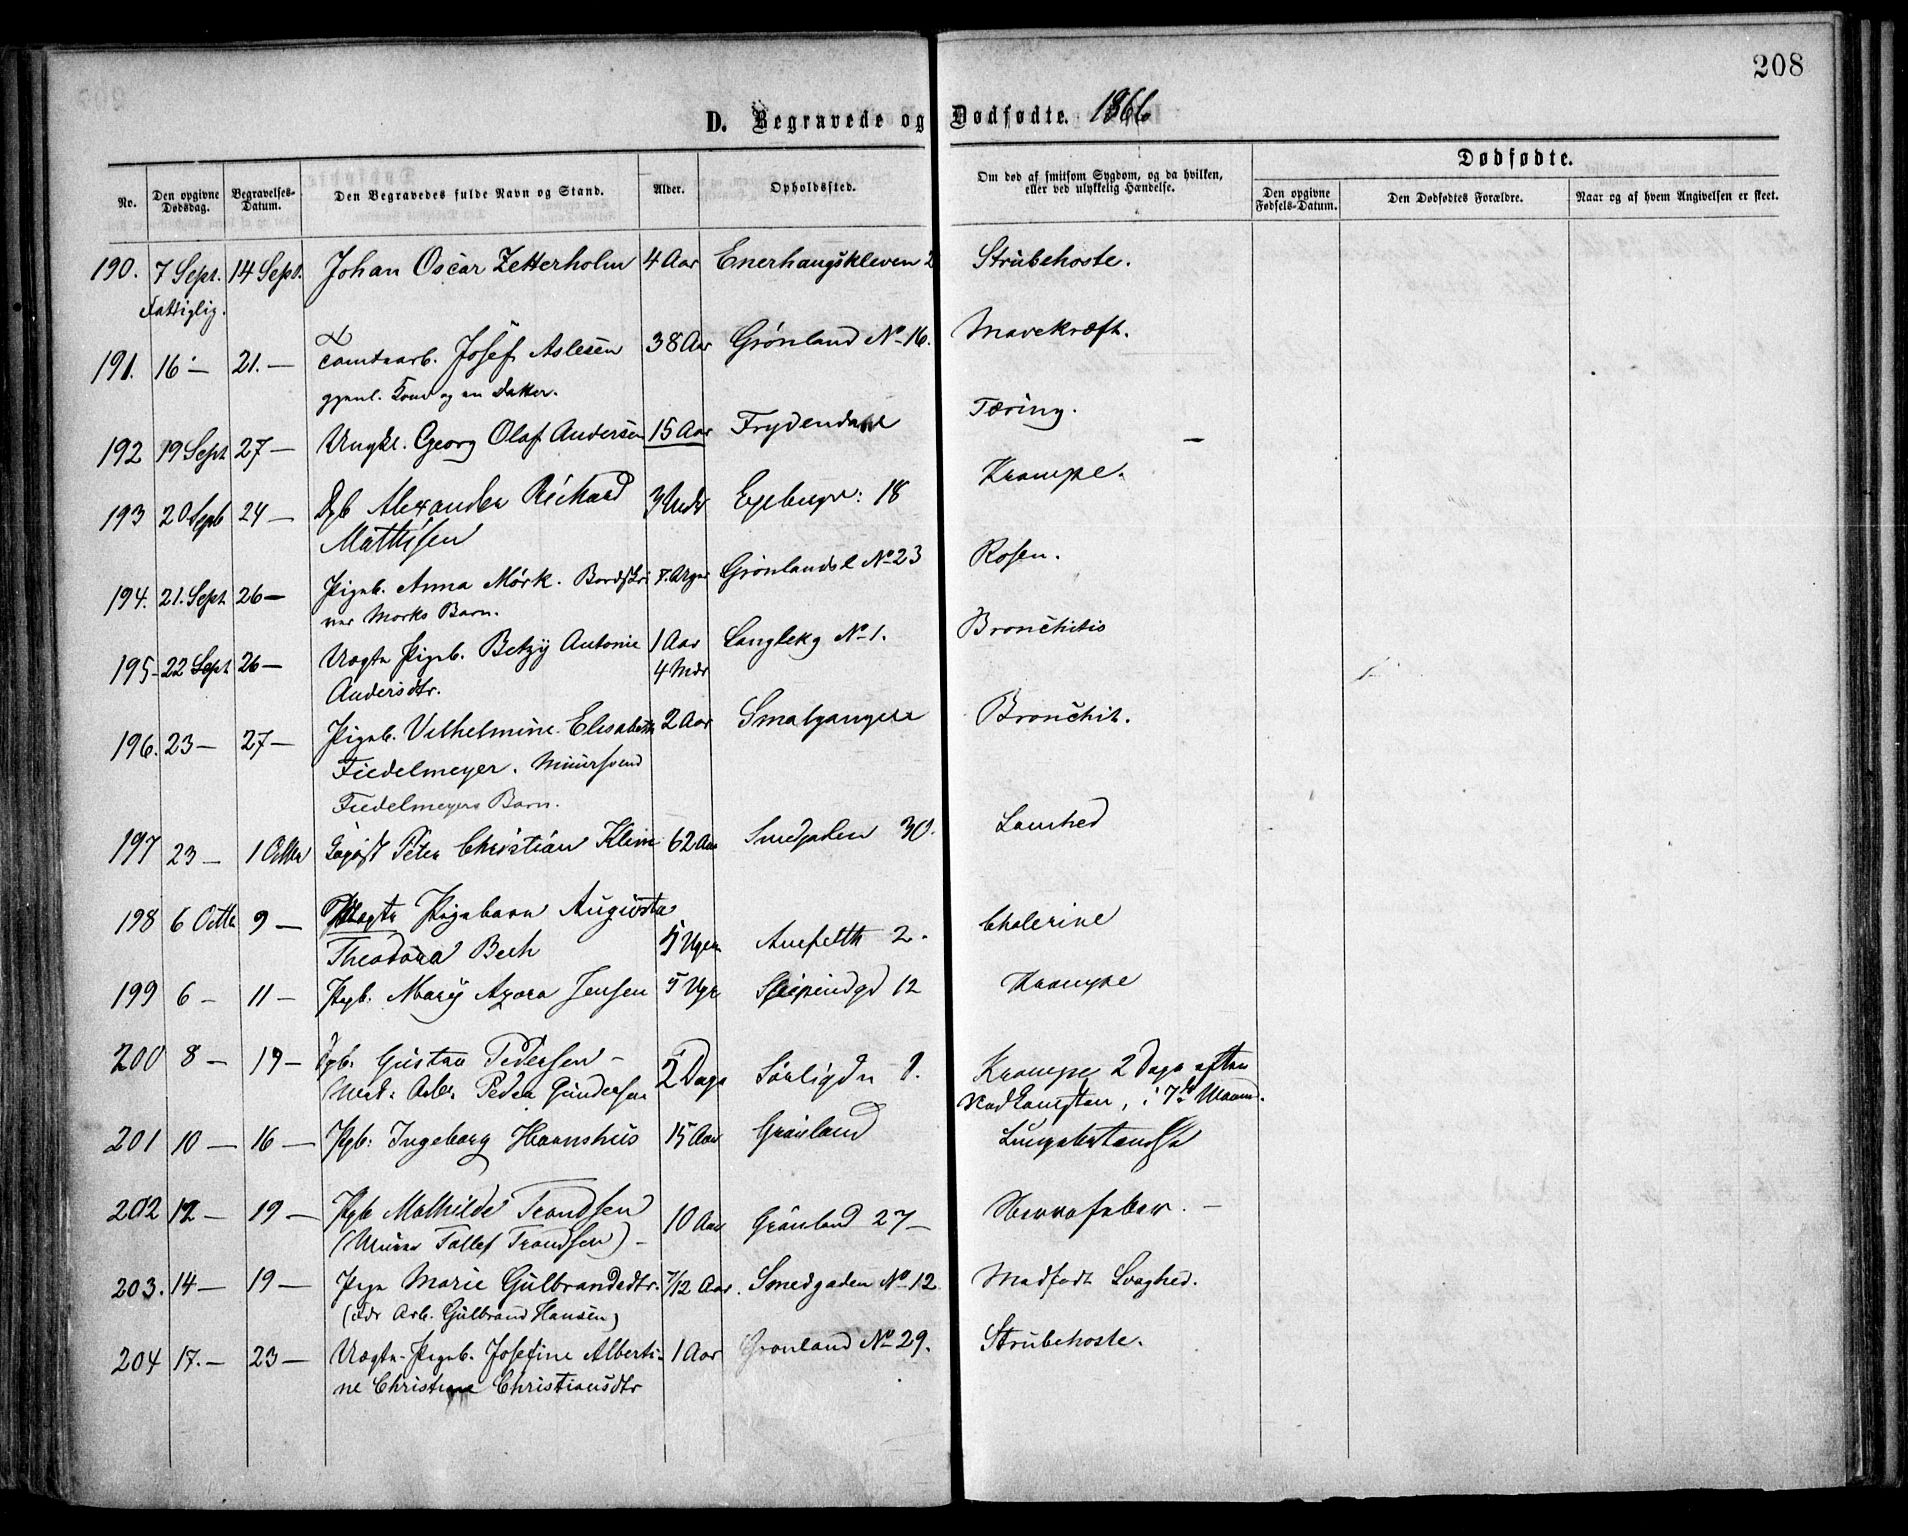 208
D. Begravede og Dødfødte. 1866
Dødfødte.
No.
Den opgivne Dødsdag.
Begravelses-Datum.
Den Begravedes fulde Navn og Stand.
Alder.
Opholdssted.
Om død af smitsom Sygdom, og da hvilken,
eller ved ulykkelig Hændelse.
Den opgivne Fødsels-Datum.
Den Dødfødtes Forældre.
Naar og af hvem Angivelsen er skeet.
190. 7 Sept. 14 Sept. Johan Oscar Zetterholm 4 Aar Enerhaugskleven 2 Strubehoste.
Fattiglig.
191. 16 – 21. – Josef Aslesen 38 Aar Grønland No 16. Mavekræft.
og en Datter.
192 19 Sept 27 – Ungkl. Georg Olaf Andersen 15 Aar Frydendal Tæring.
193 20 Sept 24 – Dgb Alexander Richard 3 Undr 18 Krampe.
Mathisen
194. 21. Sept 26 – Pigeb. Anna Mörk. Bordskri Grönlandsl No 23 Rosen.
ver Morks Barn.
195 – 22 Sept 26 – Uægte Pigeb. Betzy Antonie 1 Aar Langlekg No 1. Bronchitis
Andersdtr. 4 Mdr
196. 23 – 27 – Pigeb. Vilhelmine Elisabeth 2 Aar Smalgangen Bronchit.
Fiedelmeyer. Muursvend
Fiedelmeyers Barn.
197 23 – 1 Octbr Logist Peter Christian Klem 62 Aar Smedgaden 30. Lamhed
198 6 Octbr 9 – Uægte Pigebarn Augusta Cholerine
Theodora Bech 5 Uger 2.
199 6 – 11 – Pgb. Mary Azora Jensen 5 Ugr 12 Krampe
200 8 – 19 – Dgb. Gustav Pedersen – Krampe 2 Dage efter
Arb. Peder Gundersen 2 Dage Sörligdn 1. Nedkomsten, i 7de Maaned.
201 10 – 16 – Pgb: Ingeborg Havnshus 15 Aar Grønland Lungebetændelse
202 12 – 19 – Pgb Mathilde Trondsen 10 Aar Grønland 27 – Nervefeber. –
(Murer Tollef Trondsen) –
203. 14 – 19 – Pige Marie Gulbrandsdtr. 7/12 Aar. Smedgaden No 12. Medfødt Svaghed.
(Fdr Arb. Gulbrand Hansen)
204 17. – 23 – Uægte Pigeb. Josefine Alberti- 1 Aar Grønland No 29. Strubehoste.
ne Christiane Christiansdtr